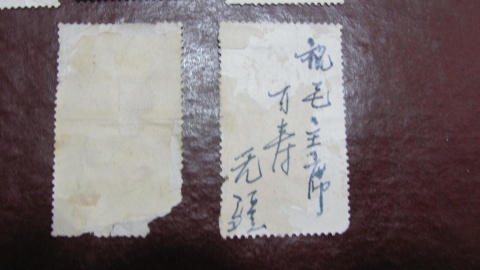 祝毛主席
万寿
无疆